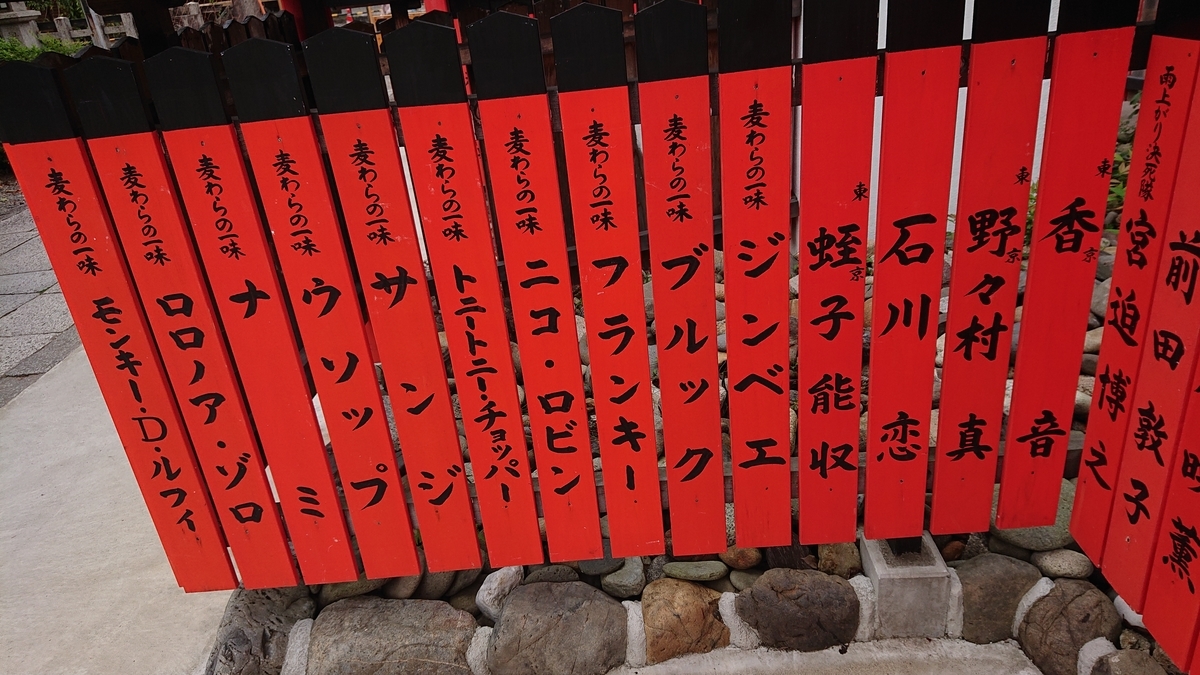 麦わらの一味 モンキー・D・ルフィ
麦わらの一味 ロロノア・ゾロ
麦わらの一味 ナミ
麦わらの一味 ウソップ
麦わらの一味 サンジ
麦わらの一味 トニートニー・チョッパー
麦わらの一味 ニコ・ロビン
麦わらの一味 フランキー
麦わらの一味 ブルック
麦わらの一味 ジンベエ
東京 蛭子能収
石川恋
東京 野々村真
東京 香音
雨上がり決死隊 宮迫博之
前田敦子
薫